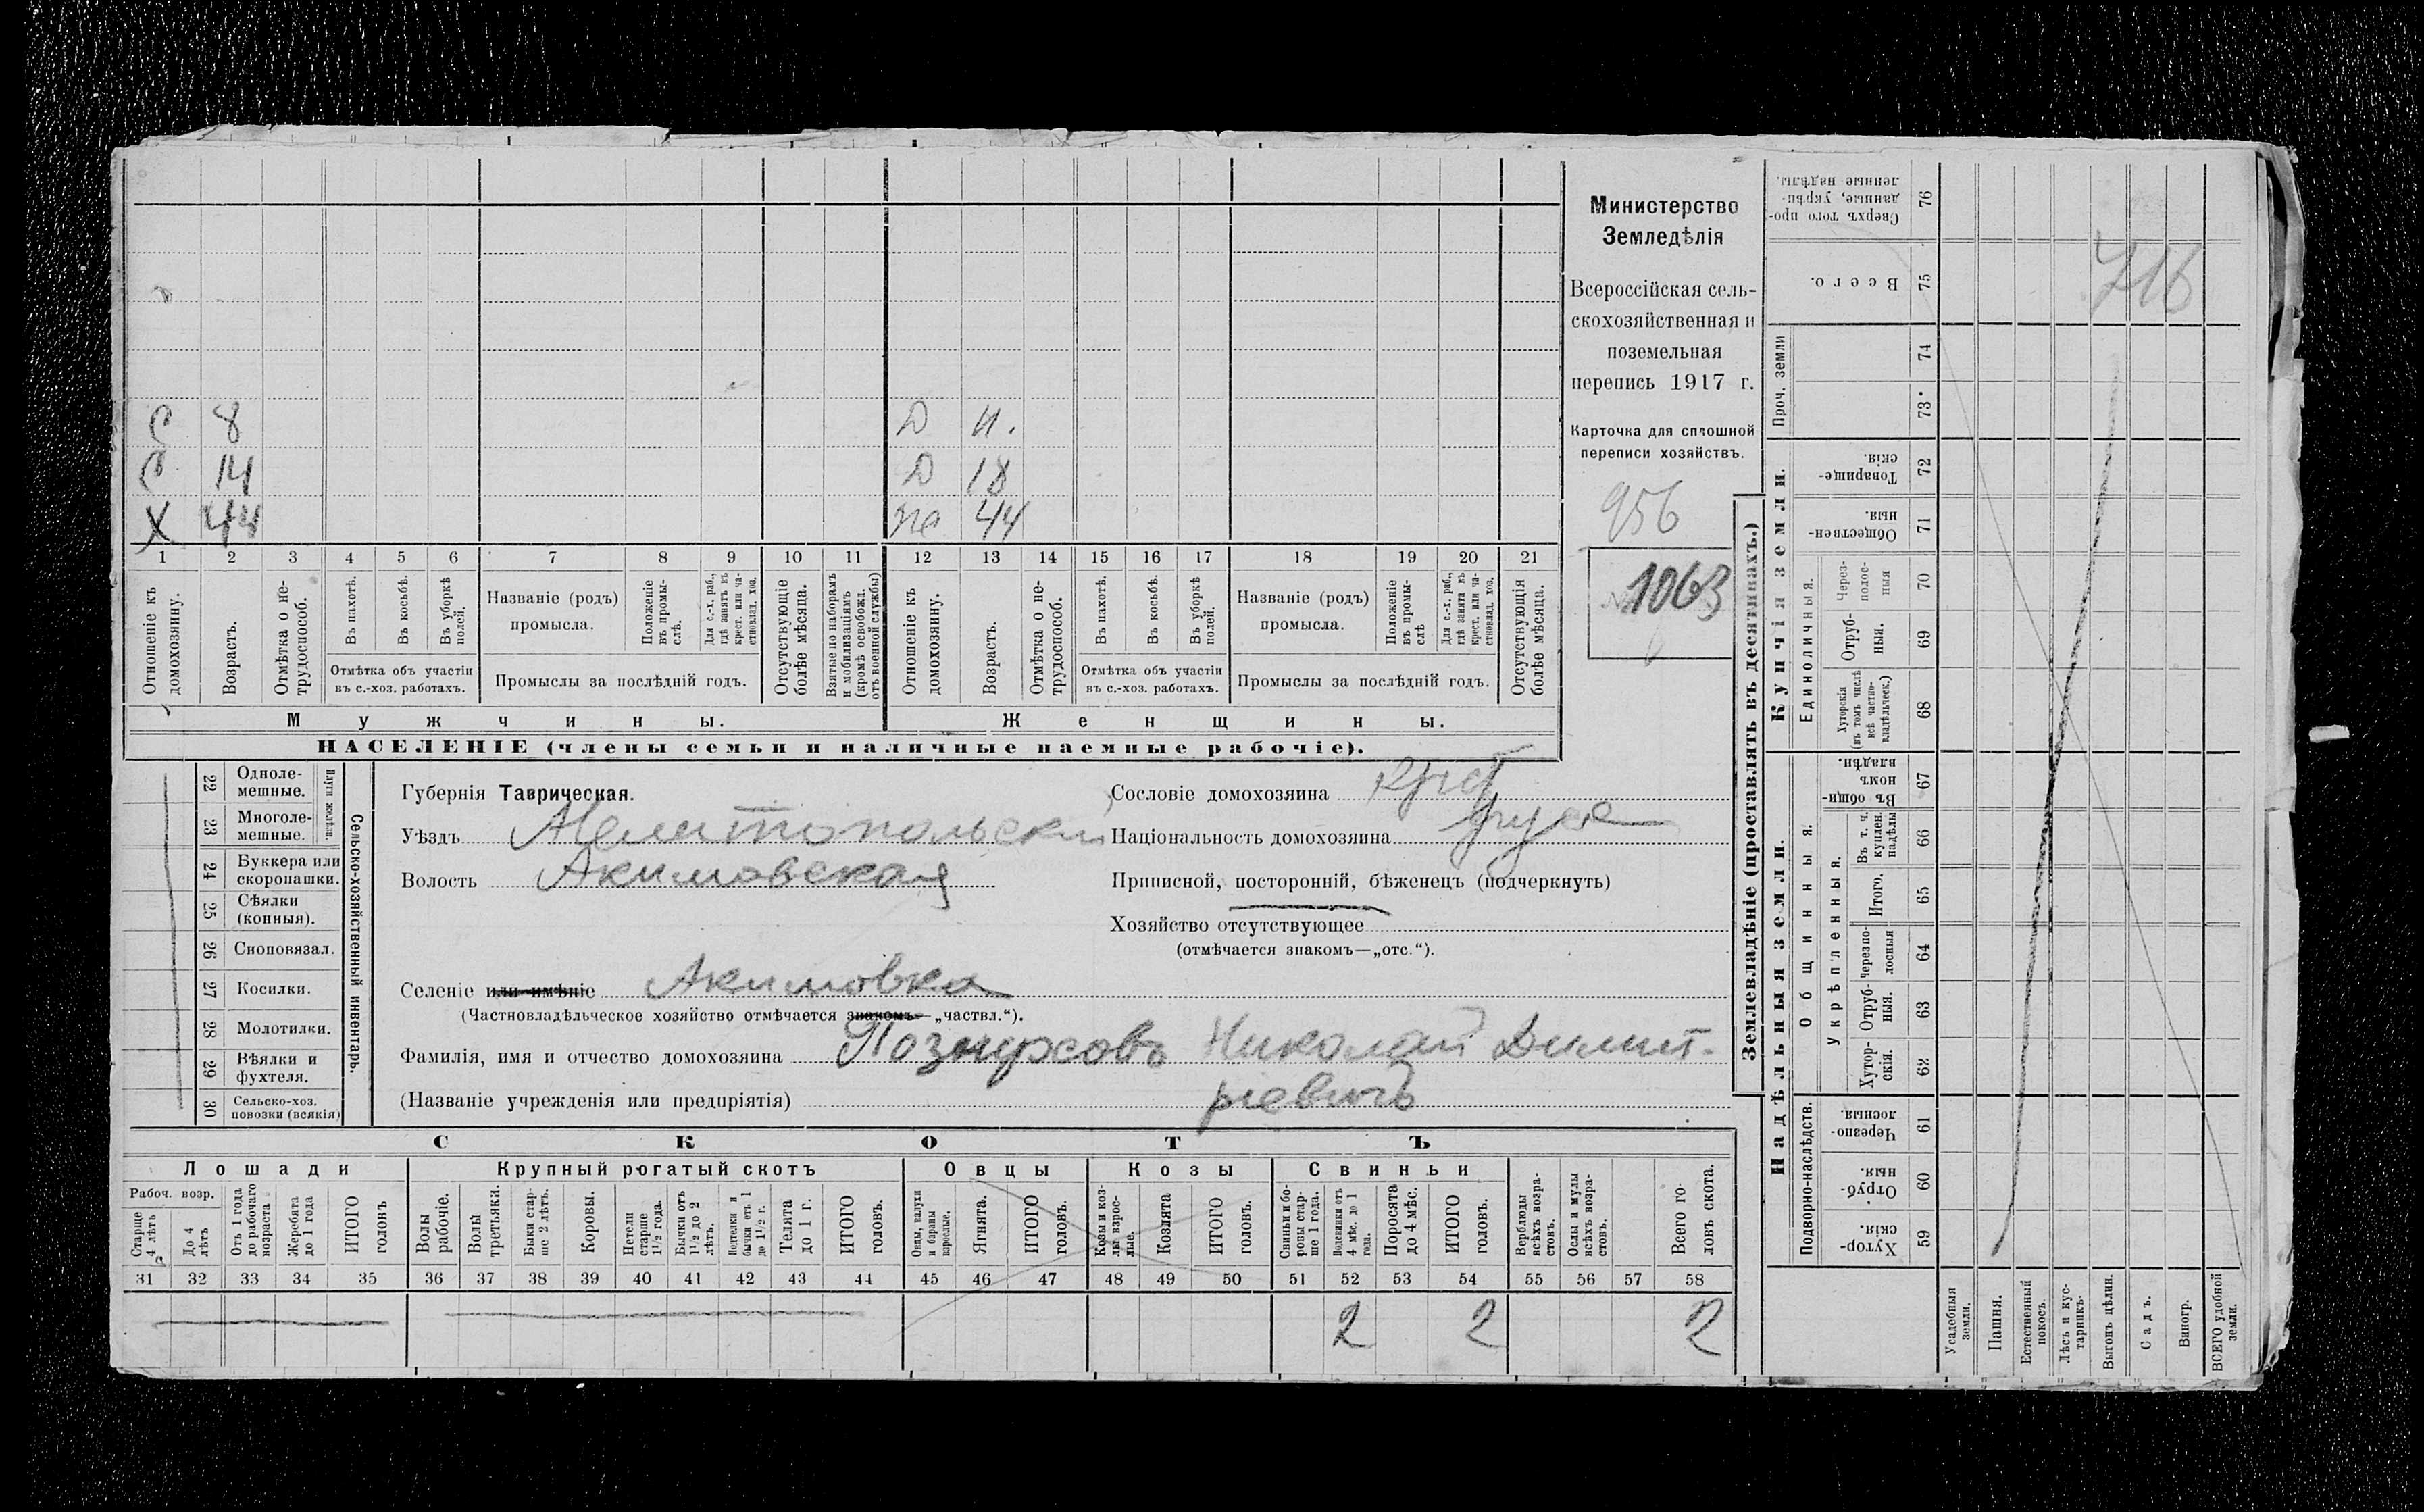 С 8 Д 11.
С 14 Д 18
Х 44 44
1 2 3 4 5 6 7 8 9 10 11 12 13 14 15 16 17 18 19 20 21
Отношеніе къ домохозяину.
Возрастъ.
Отмѣтка о не-трудоспособ.
Въ пахотѣ.
Въ косьбѣ.
Въ уборкѣ полей.
Отмѣтка объ участіи
въ с.-хоз. работахъ.
Названіе (родъ)
промысла.
Положеніе въ промы-слѣ.
Для с.-х. раб., гдѣ занятъ въ крест. или ча-стновлад. хоз.
Промыслы за послѣдній годъ.
Отсутствующіе болѣе мѣсяца.
Взятые по наборамъ и мобилизаціямъ (кромѣ освобожд. отъ военной службы)
Отношеніе къ домохозяину.
Возрастъ.
Отмѣтка о не-трудоспособ.
Въ пахотѣ.
Въ косьбѣ.
Въ уборкѣ полей.
Отмѣтка объ участіи
въ с.-хоз. работахъ.
Названіе (родъ)
промысла.
Положеніе въ промы-слѣ
Для с.-х. раб., гдѣ занята въ крест. или ча-стновлад. хоз.
Промыслы за послѣдній годъ.
Отсутствующія болѣе мѣсяца.
Мужчины. Женщины.
НАСЕЛЕНІЕ (члены семьи и наличные наемные рабочіе).
Министерство
Земледѣлія
Всероссійская сель-
скохозяйственная и
поземельная
перепись 1917 г.
Карточка для сплошной
переписи хозяйствъ.
956
1063
22 Одноле-мешные.
23 Многоле-мешные.
Плуги желѣзн.
24 Буккера или скоропашки.
25 Сѣялки (конныя).
26 Сноповязал.
27 Косилки.
28 Молотилки.
29 Вѣялки и фухтеля.
30 Сельско-хоз. повозки (всякія)
Сельско-хозяйственный инвентарь.
Губернія Таврическая.
Уѣздъ Мелитопольскій
Волость Акимовская
Селеніе или имѣніе Акимовка
(Частновладѣльческое хозяйство отмѣчается знакомъ „частвл.“).
Фамилія, имя и отчество домохозяина Николай Димит-
(Названіе учрежденія или предпріятія) ріевичъ
Сословіе домохозяина Крест
Національность домохозяина
Приписной, посторонній, бѣженецъ (подчеркнуть)
Хозяйство отсутствующее
(отмѣчается знакомъ—„отс.“).
СКОТЪ
Лошади Крупный рогатый скотъ Овцы Козы Свиньи
Рабоч. возр.
Старше 4 лѣтъ
До 4 лѣтъ
Отъ 1 года до рабочаго возраста
Жеребята до 1 года
ИТОГО головъ
Волы рабочіе.
Волы третьяки.
Быки стар-ше 2 лѣтъ.
Коровы.
Нетели старше 1½ года.
Бычки отъ 1½ до 2 лѣтъ.
Подтелки и бычки отъ 1 до 1½ г.
Телята до 1 г.
ИТОГО головъ.
Овцы, валухи и бараны взрослые.
Ягнята.
ИТОГО головъ.
Козы и коз-лы взрос-лые.
Козлята
ИТОГО головъ.
Свиньи и бо-ровы стар-ше 1 года.
Подсвинки отъ 4 мѣс. до 1 года.
Поросята до 4 мѣс.
ИТОГО головъ.
Верблюды всѣхъ возра-стовъ.
Ослы и мулы всѣхъ возра-стовъ.
Всего го-ловъ скота.
31 32 33 34 35 36 37 38 39 40 41 42 43 44 45 46 47 48 49 50 51 52 53 54 55 56 57 58
2 2 2
Землевладѣніе (проставлять въ десятинахъ.)
Надѣльныя земли. Купчія земли.
Сверхъ того про-данные, укрѣп-ленные надѣлы. 76
Всего. 75
Проч. земли 74
73
Товарище-скія. 72
Обществен-ныя. 71
Единоличныя.
Через-полос-ныя 70
Отруб-ныя. 69
Хуторскія (въ томъ числѣ всѣ частно-владѣльческ.) 68
Общинныя.
Въ общи-номъ владѣн. 67
Укрѣпленныя.
Въ т. ч. куплен. надѣлы 66
Итого. 65
Черезпо-лосныя 64
Отруб-ныя. 63
Хутор-скія. 62
Подворно-наслѣдств.
Черезпо-лосныя. 61
Отруб-ныя. 60
Хутор-скія. 59
Усадебныя земли.
Пашня.
Естественный покосъ.
Лѣсъ и кус-тарникъ.
Выгонъ цѣлин.
Садъ.
Виногр.
ВСЕГО удобной земли.
716